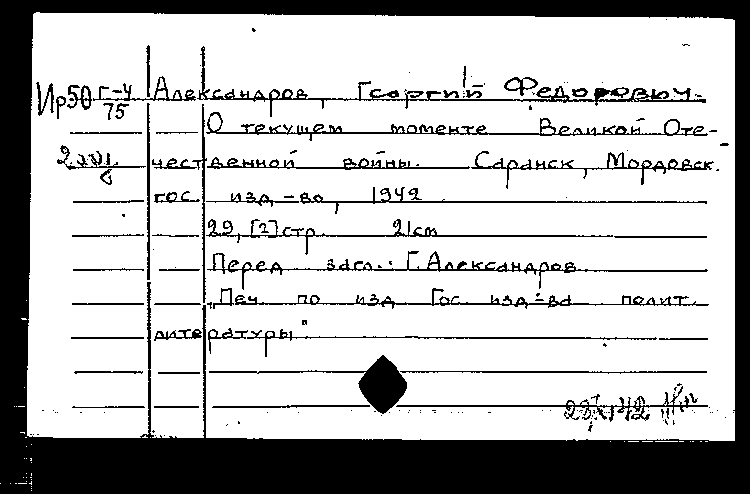 Ир50 Г-4/75 Александров, Георгий Федорович.
О текущем моменте Великой Оте-
2 экз чественной войны. Саранск, Мордовск.
гос. изд-во, 1942
29, [2] стр. 21 cm
Перед загл.: Г. Александров.
"Печ. по изд. Гос. изд-ва полит.
литературы".